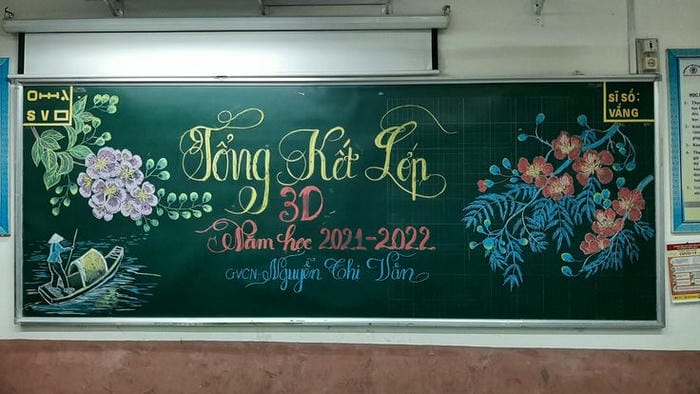 SĨ SỐ:
VẮNG
S V
Tổng Kết Lớp
3D
Năm học 2021-2022
GVCN: Nguyễn Thị Vân